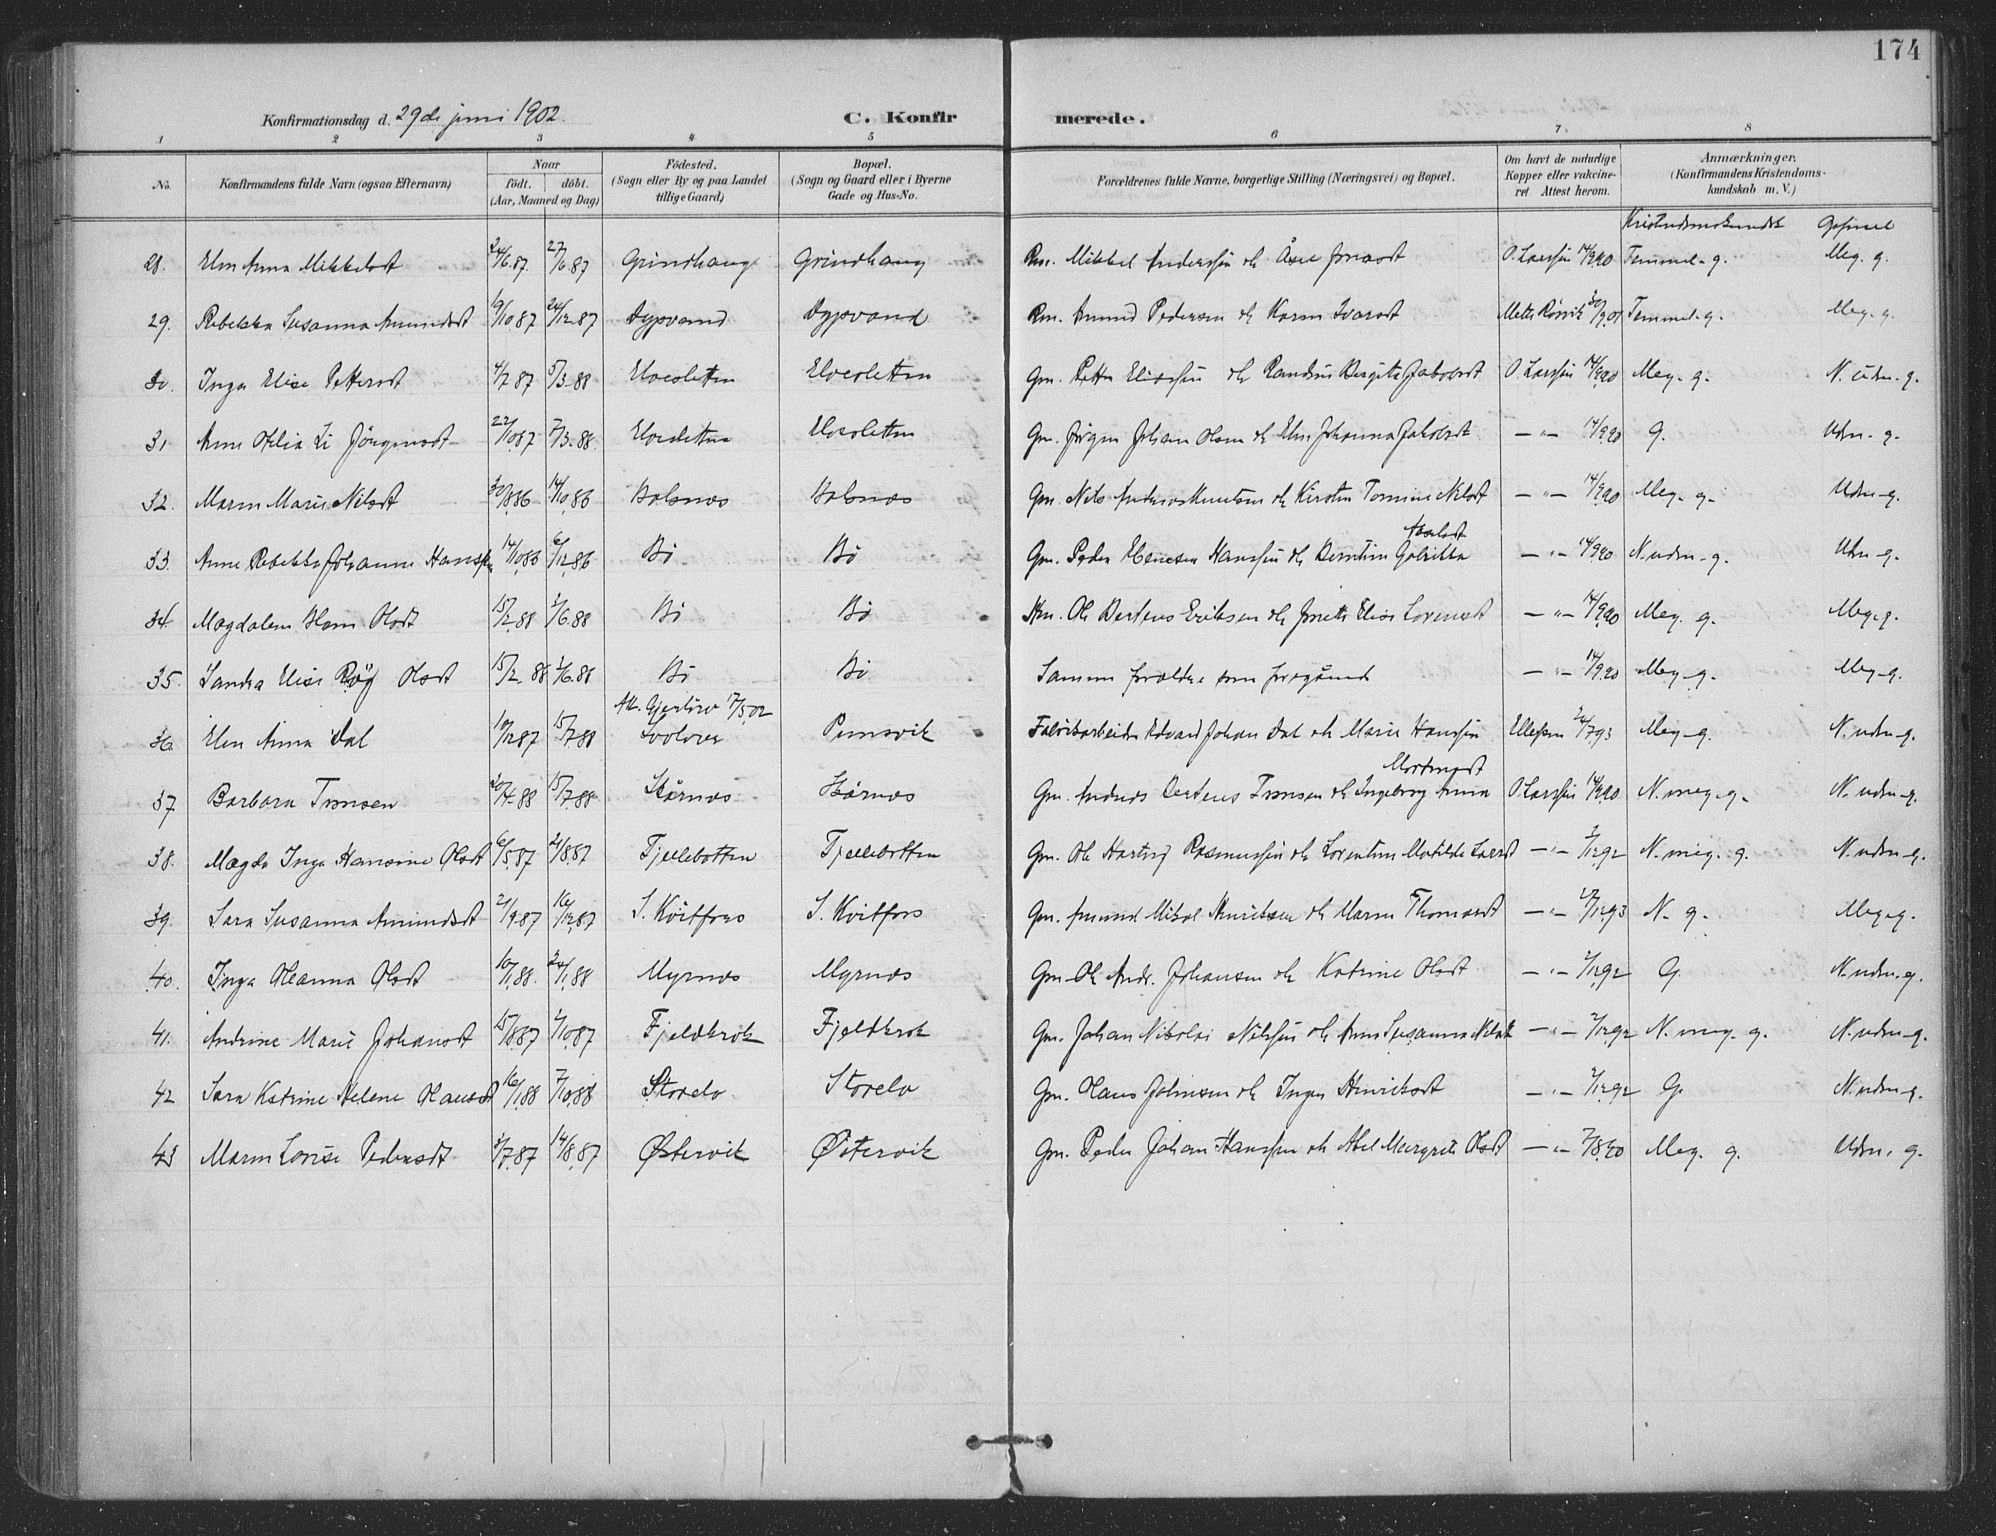 174
Konfirmationsdag d. 29de juni 1902. C. Konfirmerede.
1 2 3 4 5 6 7. 8
No. Konfirmandens fulde Navn (ogsaa Efternavn) Naar födt. döbt. (Aar, Maaned og Dag) Födested. (Sogn eller By og paa Landet tillige Gaard) Bopæl. (Sogn og Gaard eller i Byerne Gade og Hus-No. Forældrenes fulde Navne, borgerlige Stilling (Næringsvei) og Bopæl. Om havt de naturlige Kopper eller vakcineret Attest herom. Anmærkninger. (Konfirmandens Kristendomskundskab m. V.)
Kristendomskundsk
28. Elen Anna Mikkelsdt 24/6.87 27/6.87 Grindhaug Grindhaug Rm. Mikkel Anderssen ok Åse Jonasdt O. Larssen 14/9.90 Temmel. g. Meg. g.
29. Rebekka Susanna Amundsdt 19/10 87 26/12.87 Dypvand Dypvand Rm. Amund Pedersen ok Karen Ivarsdt Mette Rösvik 30/9.01 Temmel. g. Meg. g.
30. Inga Elise Pettersdt 4/7 87 5/3.88 Elvesletten Elvesletten Gm. Petter Eliassen ok Randine Birgitte Jakobsdt O. Larssen 14/9.90 Meg. g. N. udm. g.
31. Anne Otelia Li Jörgensdt 22/10 87 7/3.88. Elvesletten Elvesletten Gm. Jörgen Johan Olsen ok Elen Johanna Jakobsdt — " — 14/9.90 G. Udm. g.
32. Maren Marie Nilsdt 30/8.86 14/10.86 Balsnes Balsnes Gm. Nils Andreas Knutsen ok Kirsten Tomine Nilsdt — " — 14/9.90 Meg. g. Udm. g.
33. Anne Rebekka Johanne Hanssen 14/10.86 6/12.86 Bö Bö Gm. Peder Ebenesen Hanssen ok Berntine Gabrikka — " — 14/9.90 N. udm. g. Udm. g.
34. Magdalena Hansi Olsdt 15/2.88 1/6.88 Bö Bö Km. Ole Bertens Eriksen ok Jonette Elise Lorensdt — " — 14/9.90 Meg. g. Meg. g.
35. Sandra Elise Rög Olsdt 15/2 88 1/6.88 Bö Bö Samme forældre som foregående — " — 14/9.90 Meg. g. Meg. g.
Att. Gjerlöv 17/5 02
36. Elen Anna Dal 10/12 87 15/7 88 Svolvær Pemsvik Fabrikarbeider Edvard Johan Dal ok Marie Hanssen Ellefsen 24/7 93 Meg. g. N. udm. g.
Mortensdt
37 Barbara Tonsen 20/4.88 15/7 88 Skårnes Skårnes Gm. Andreas Bertens Tonsen ok Ingeborg Anna O. Larssen 14/9.90 N. meg. g. N. udm. g.
38. Magda Inga Hansine Olsdt 6/5.87 21/8.87 Fjellbotten Fjellbotten Gm. Ole Hartvig Rasmussen ok Lorentine Matilde Larsdt — " — 2/12.92 N. meg. g. N. udm. g.
39. Sara Susanna Amundsdt 21/9.87 16/12.87 S. Kvitfors S. Kvitfors Gm. Amund Mikal Henriksen ok Maren Thomasdt — " — 27/12.93 N. g. Meg. g.
40. Inga Oleanna Olsdt 10/1.88. 24/1.88 Myrnes Myrnes Gm. Ole Andr. Johansen ok Katrine Olsdt — " — 2/12.92 G. N. udm. g.
41. Andrine Marie Johansdt 15/8.87 2/10.87 Fjeldkrok Fjeldkrok Gm. Johan Nikolai Nilssen ok Anne Susanna Nilsdt — " — 2/12.92 N. meg. g. N. udm. g.
42 Sara Katrine Helene Hansdt 16/1.88 7/10.88 Storelv Storelv Gm. Hans Johnsen ok Inger Henriksdt — " — 2/12.92 G. N. udm. g.
43 Maren Lovise Pedersdt 3/7.87 14/8.87 Östervik Östervik Gm. Peder Johan Hanssen ok Abel Margrete Olsdt — " — 7/8.90 Meg. g. Udm. g.